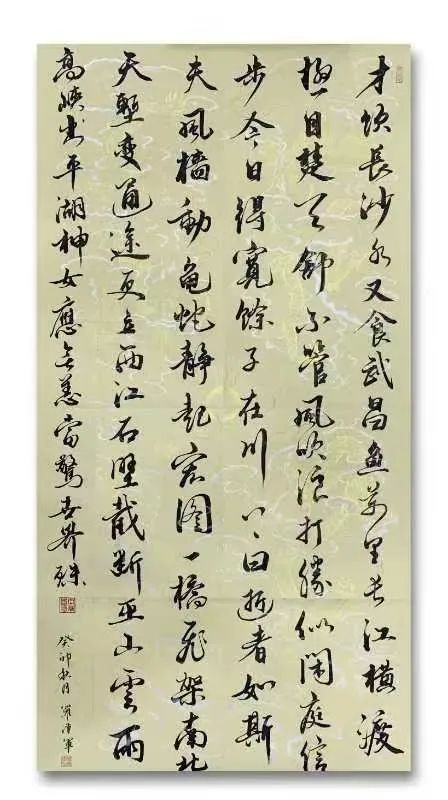 才飲長沙水又食武昌魚萬里長江橫渡
極目楚天舒不管風吹浪打勝似閑庭信
步今日得寬餘子在川上曰逝者如斯
夫風檣動龜蛇靜起宏圖一橋飛架南北
天塹變通途更立西江石壁截斷巫山雲雨
高峽出平湖神女應無恙當驚世界殊
癸卯秋月 羅軍